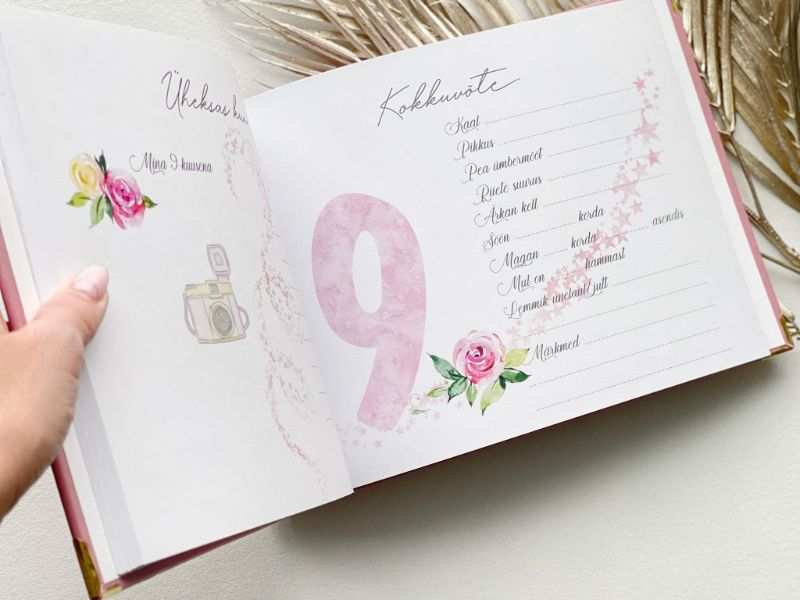 Üheksas kuu
Mina 9-kuusena
Kokkuvõte
9
Kaal
Pikkus
Pea ümbermõõt
Riiete suurus
Ärkan kell
Söön korda
Magan korda asendis
Mul on hammast
Lemmik unelaul/jutt
Märkmed